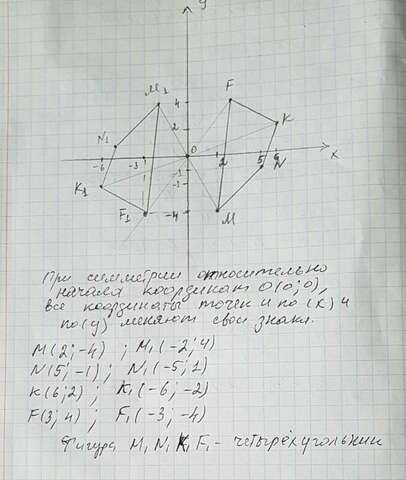 y
M₁
F
4
2
K
N₁
0
-6
-3
2
5
6
x
-1
N
K₁
-1
F₁
-4
M
При симметрии относительно
начала координат O(0;0),
все координаты точек и по (x) и
по (y) меняют свои знаки.
M(2;-4) ; M₁(-2;4)
N(5;-1) ; N₁(-5;1)
K(6;2) ; K₁(-6;-2)
F(3;4) ; F₁(-3;-4)
Фигура M₁N₁K₁F₁ - четырёхугольник